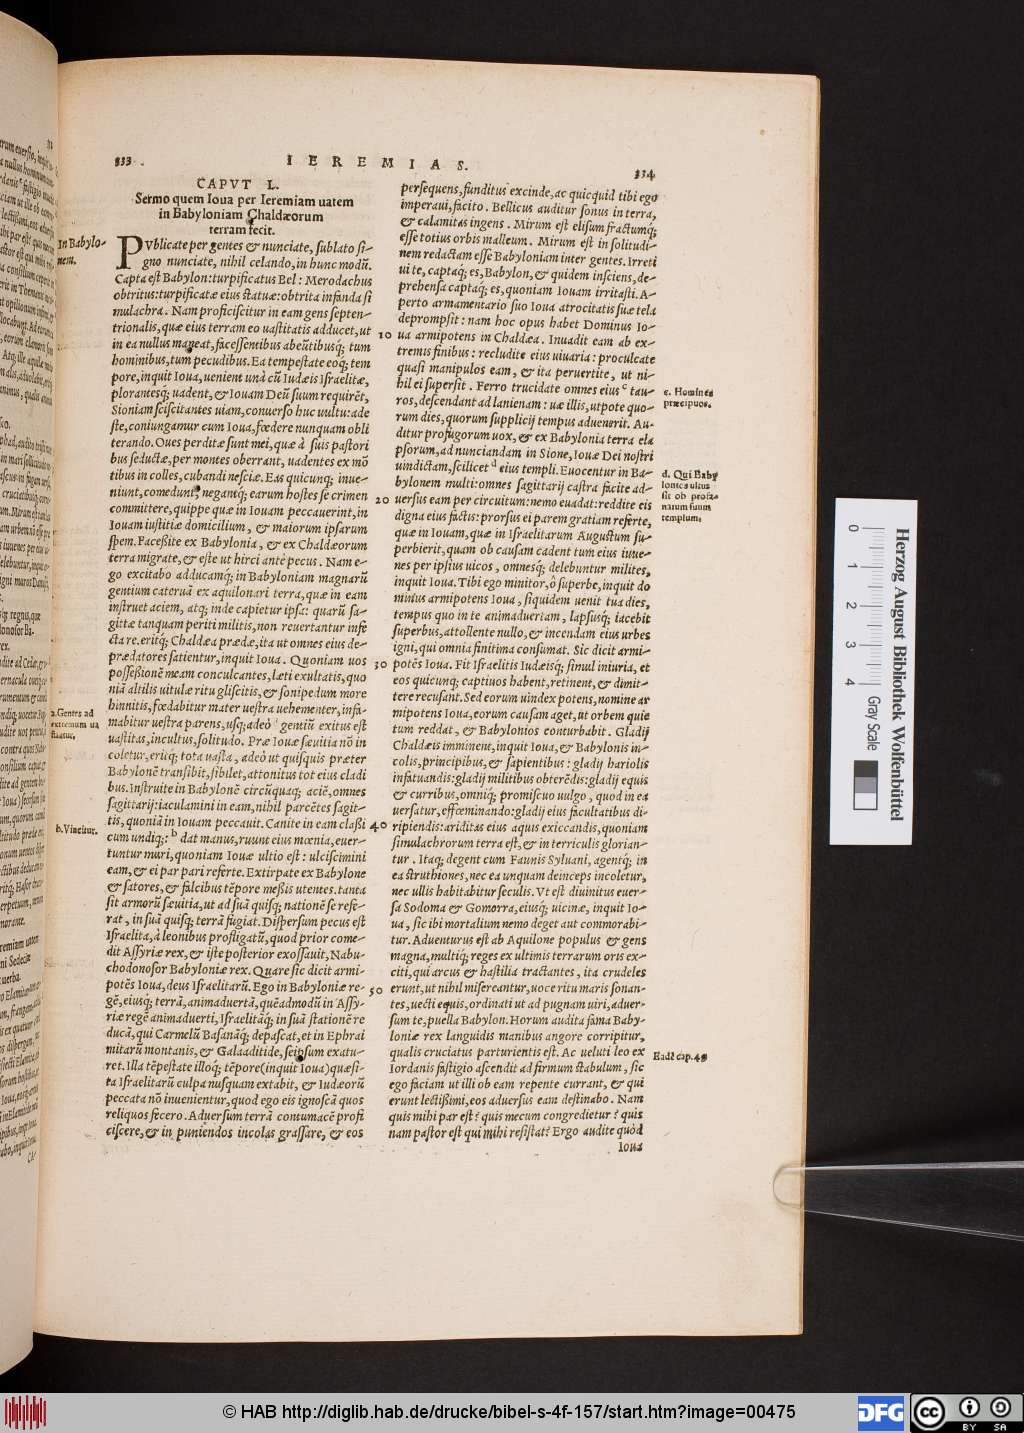 333
IEREMIAS.
334
CAPVT L.
Sermo quem Ioua per Ieremiam uatem
in Babyloniam Chaldæorum
terram fecit.
In Babylo-
nem.
PVblicate per gentes & nunciate, sublato si-
gno nunciate, nihil celando, in hunc modū.
Capta est Babylon: turpificatus Bel: Merodachus
obtritus: turpificatæ eius statuæ: obtrita infanda si
mulachra. Nam proficiscitur in eam gens septen-
trionalis, quæ eius terram eo uastitatis adducet, ut
in ea nullus maneat, facessentibus abeūtibusq́; tum
hominibus, tum pecudibus. Ea tempestate eoq́; tem
pore, inquit Ioua, uenient unà cū Iudæis Israelitæ,
plorantesq́; uadent, & Iouam Deū suum requirēt,
Sioniam sciscitantes uiam, conuerso huc uultu: ade
ste, coniungamur cum Ioua, fœdere nunquam obli
terando. Oues perditæ sunt mei, quæ à suis pastori
bus seductæ, per montes oberrant, uadentes ex mō
tibus in colles, cubandi nesciæ. Eas quicunq́; inue-
niunt, comedunt, negantq́; earum hostes se crimen
committere, quippe quæ in Iouam peccauerint, in
Iouam iustitiæ domicilium, & maiorum ipsarum
spem. Facessite ex Babylonia, & ex Chaldæorum
terra migrate, & este ut hirci ante pecus. Nam e-
go excitabo adducamq́; in Babyloniam magnarū
gentium cateruā ex aquilonari terra, quæ in eam
instruet aciem, atq́; inde capietur ipsa: quarū sa-
gittæ tanquam periti militis, non reuertantur infe
ctæ. eritq́; Chaldæa prædæ, ita ut omnes eius de-
prædatores satientur, inquit Ioua. Quoniam uos
possessionē meam conculcantes, læti exultatis, quo
niā altilis uitulæ ritu gliscitis, & sonipedum more
hinnitis, fœdabitur mater uestra uehementer, infa-
mabitur uestra parens, usq́; adeò a gentiū exitus est
uastitas, incultus, solitudo. Præ Iouæ sæuitia nō in
coletur, eritq́; tota uasta, adeò ut quisquis præter
Babylonē transibit, sibilet, attonitus tot eius cladi
bus. Instruite in Babylonē circūquaq́; aciē, omnes
sagittarij: iaculamini in eam, nihil parcētes sagit-
tis, quoniā in Iouam peccauit. Canite in eam classi
cum undiq́;: b dat manus, ruunt eius mœnia, euer-
tuntur muri, quoniam Iouæ ultio est: ulciscimini
eam, & ei par pari referte. Extirpate ex Babylone
& satores, & falcibus tēpore messis utentes. tanta
sit armorū sæuitia, ut ad suā quisq́; nationē se refe-
rat, in suā quisq́; terrā fugiat. Dispersum pecus est
Israelita, à leonibus profligatū, quod prior come-
dit Assyriæ rex, & iste posterior exossauit, Nabu-
chodonosor Babyloniæ rex. Quare sic dicit armi-
potēs Ioua, deus Israelitarū. Ego in Babyloniæ re-
gē, eiusq́; terrā, animaduertā, quēadmodū in Assy-
riæ regē animaduerti, Israelitāq́; in suā stationē re
ducā, qui Carmelū Basanāq́; depascat, et in Ephrai
mitarū montanis, & Galaaditide, seipsum exatu-
ret. Illa tēpestate illoq́; tēpore (inquit Ioua) quæsi-
ta Israelitarū culpa nusquam extabit, & Iudæorū
peccata nō inuenientur, quod ego eis ignoscā quos
reliquos fecero. Aduersum terrā contumacē profi
ciscere, & in puniendos incolas grassare, & eos
a. Gentes ad
extremum ua
statæ.
b. Vincitur.
10
20
30
40
50
persequens, funditus excinde, ac quicquid tibi ego
imperaui, facito. Bellicus auditur sonus in terra,
& calamitas ingens. Mirum est elisum fractumq́;
esse totius orbis malleum. Mirum est in solitudi-
nem redactam esse Babyloniam inter gentes. Irreti
ui te, captaq́; es, Babylon, & quidem insciens, de-
prehensa captaq́; es, quoniam Iouam irritasti. A-
perto armamentario suo Ioua atrocitatis suæ tela
deprompsit: nam hoc opus habet Dominus Io-
ua armipotens in Chaldæa. Inuadit eam ab ex-
tremis finibus: recludite eius uiuaria: proculcate
quasi manipulos eam, & ita peruertite, ut ni-
hil ei supersit. Ferro trucidate omnes eius c tau-
ros, descendant ad lanienam: uæ illis, utpote quo-
rum dies, quorum supplicij tempus aduenerit. Au-
ditur profugorum uox, & ex Babylonia terra ela
psorum, ad nunciandam in Sione, Iouæ Dei nostri
uindictam, scilicet d eius templi. Euocentur in Ba-
bylonem multi: omnes sagittarij castra facite ad-
uersus eam per circuitum: nemo euadat: reddite eis
digna eius factis: prorsus ei parem gratiam referte,
quæ in Iouam, quæ in Israelitarum Augustum su-
perbierit, quam ob causam cadent tum eius iuue-
nes per ipsius uicos, omnesq́; delebuntur milites,
inquit Ioua. Tibi ego minitor, ò superbe, inquit do
minus armipotens Ioua, siquidem uenit tua dies,
tempus quo in te animaduertam, lapsusq́; iacebit
superbus, attollente nullo, & incendam eius urbes
igni, qui omnia finitima consumat. Sic dicit armi-
potēs Ioua. Fit Israelitis Iudæisq́; simul iniuria, et
eos quicunq́; captiuos habent, retinent, & dimit-
tere recusant. Sed eorum uindex potens, nomine ar
mipotens Ioua, eorum causam aget, ut orbem quie
tum reddat, & Babylonios conturbabit. Gladij
Chaldæis imminent, inquit Ioua, & Babylonis in-
colis, principibus, & sapientibus: gladij hariolis
infatuandis: gladij militibus obterēdis: gladij equis
& curribus, omniq́; promiscuo uulgo, quod in ea
uersatur, effœminando: gladij eius facultatibus di-
ripiendis: ariditas eius aquis exiccandis, quoniam
simulachrorum terra est, & in terriculis glorian-
tur. Itaq́; degent cum Faunis Syluani, agentq́; in
ea struthiones, nec ea unquam deinceps incoletur,
nec ullis habitabitur seculis. Vt est diuinitus euer-
sa Sodoma & Gomorra, eiusq́; uicinæ, inquit Io-
ua, sic ibi mortalium nemo deget aut commorabi-
tur. Aduenturus est ab Aquilone populus & gens
magna, multiq́; reges ex ultimis terrarum oris ex-
citi, qui arcus & hastilia tractantes, ita crudeles
erunt, ut nihil misercantur, uoce ritu maris sonan-
tes, uecti equis, ordinati ut ad pugnam uiri, aduer-
sum te, puella Babylon. Horum audita fama Baby-
loniæ rex languidis manibus angore corripitur,
qualis cruciatus parturientis est. Ac ueluti leo ex
Iordanis fastigio ascendit ad firmum stabulum, sic
ego faciam ut illi ob eam repente currant, & qui
erunt lectissimi, eos aduersus eam destinabo. Nam
quis mihi par est? quis mecum congredietur? quis
nam pastor est qui mihi resistat? Ergo audite quòd
Ioua
c. Homines
præcipuos.
d. Qui Baby
lonies ultus
sit ob profa-
narum suum
templum.
Eadē cap. 49
Herzog August Bibliothek Wolfenbüttel
0 1 2 3 4
Gray Scale
© HAB http://diglib.hab.de/drucke/bibel-s-4f-157/start.htm?image=00475
DFG
cc
BY SA